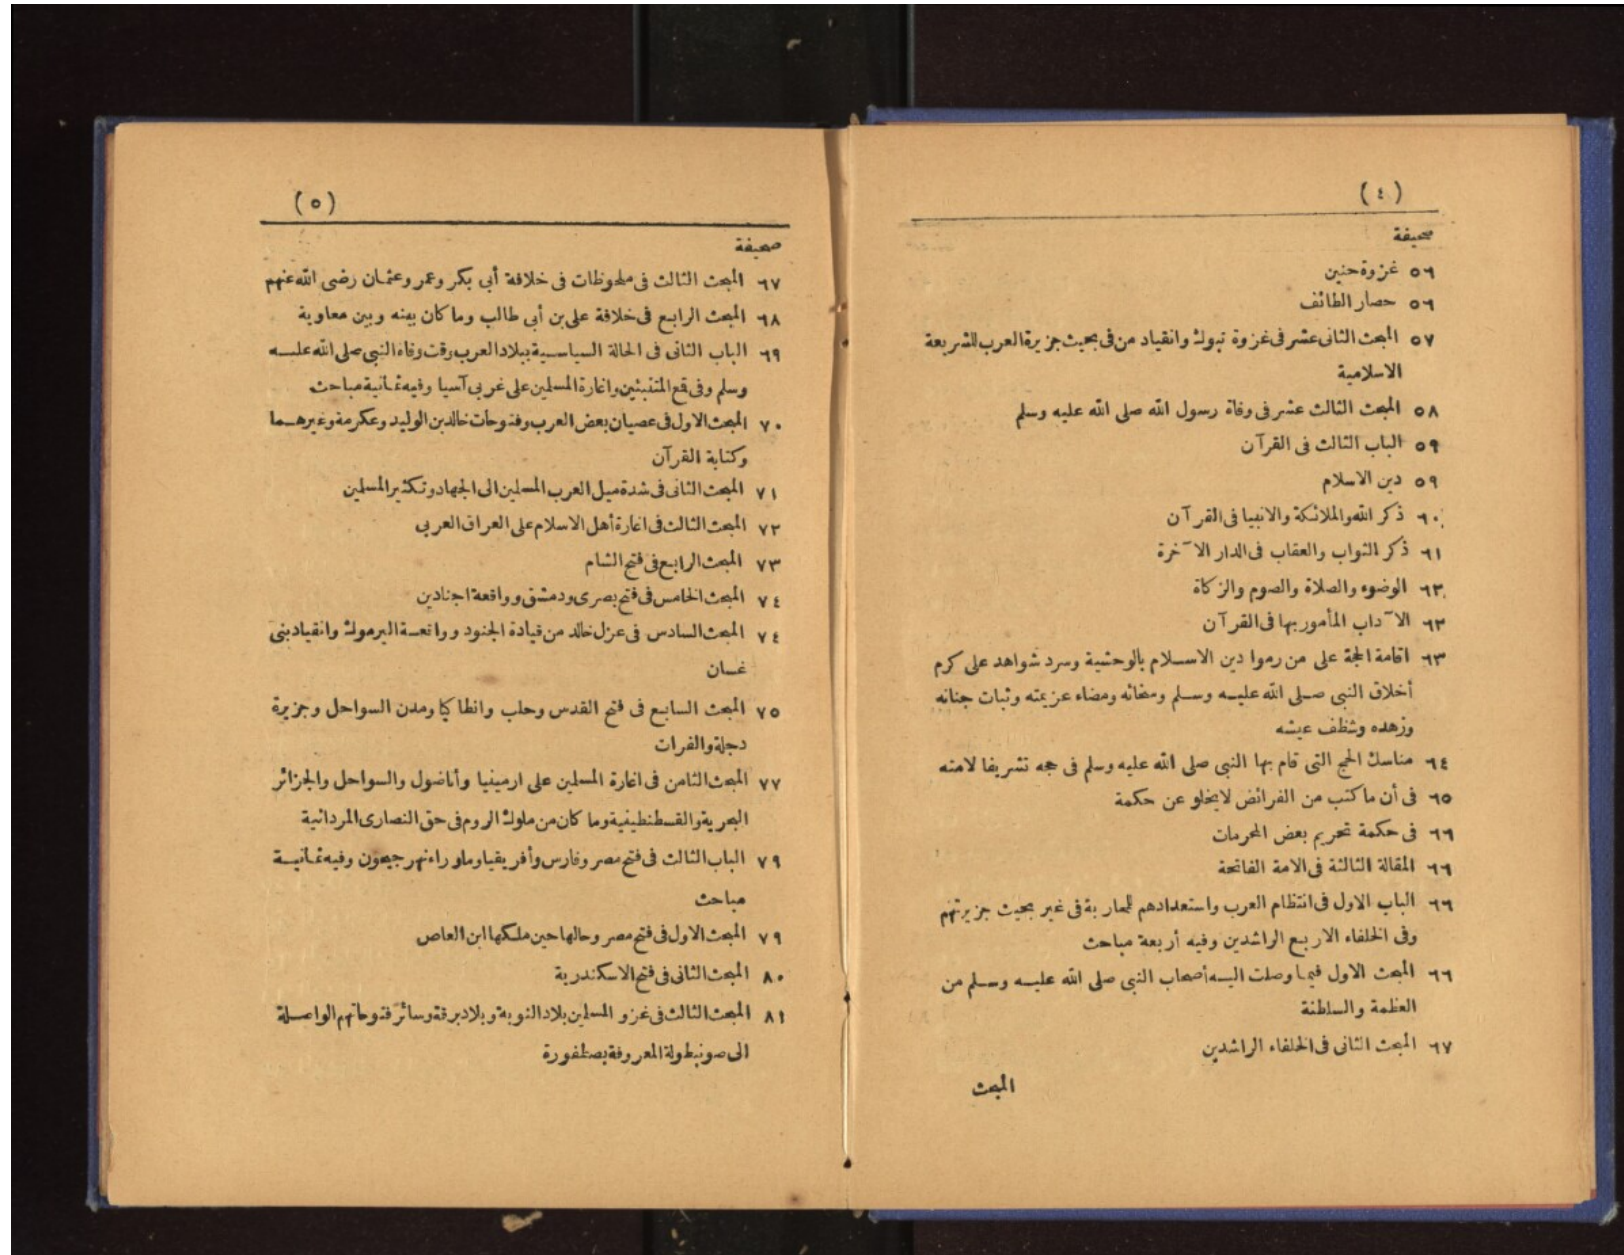 (٤)
صحيفة
٥٦ غزوة حنين
٥٦ حصار الطائف
٥٧ المبحث الثانى عشر فى غزوة تبوك وانقياد من فى بحيث جزيرة العرب للشريعة
الاسلامية
٥٨ المبحث الثالث عشر فى وفاة رسول الله صلى الله عليه وسلم
٥٩ الباب الثالث فى القرآن
٥٩ دين الاسلام
٦٠ ذكر الله والملائكة والانبيا فى القرآن
٦١ ذكر الثواب والعقاب فى الدار الآخرة
٦٢ الوضوء والصلاة والصوم والزكاة
٦٢ الآداب المأمور بها فى القرآن
٦٣ اقامة الحجة على من رموا دين الاسلام بالوحشية وسرد شواهد على كرم
أخلاق النبى صلى الله عليه وسلم وسخائه ومضاء عزيمته وثبات جنانه
وزهده وشظف عيشه
٦٤ مناسك الحج التى قام بها النبى صلى الله عليه وسلم فى حجه تشريفا لامته
٦٥ فى أن ماكتب من الفرائض لايخلو عن حكمة
٦٦ فى حكمة تحريم بعض المحرمات
٦٦ المقالة الثالثة فى الامة الفاتحة
٦٦ الباب الاول فى انتظام العرب واستعدادهم للمحاربة فى غير بحيث جزيرتهم
وفى الخلفاء الاربع الراشدين وفيه أربعة مباحث
٦٦ المبحث الاول فيما وصلت اليه أصحاب النبى صلى الله عليه وسلم من
العظمة والسلطنة
٦٧ المبحث الثانى فى الخلفاء الراشدين
المبحث
(٥)
صحيفة
٦٧ المبحث الثالث فى ملحوظات فى خلافة أبى بكر وعمر وعثمان رضى الله عنهم
٦٨ المبحث الرابع فى خلافة على بن أبى طالب وما كان بينه وبين معاوية
٦٩ الباب الثانى فى الحالة السياسية ببلاد العرب وقت وفاة النبى صلى الله عليه
وسلم وفى قمع المتنبئين واغارة المسلمين على غربى آسيا وفيه ثمانية مباحث
٧٠ المبحث الاول فى عصيان بعض العرب وفتوحات خالد بن الوليد وعكرمة وغيرهما
وكتابة القرآن
٧١ المبحث الثانى فى شدة ميل العرب المسلمين الى الجهاد وتكثير المسلمين
٧٢ المبحث الثالث فى اغارة أهل الاسلام على العراق العربى
٧٣ المبحث الرابع فى فتح الشام
٧٤ المبحث الخامس فى فتح بصرى ودمشق وواقعة اجنادين
٧٤ المبحث السادس فى عزل خالد من قيادة الجنود وواقعة اليرموك وانقياد بنى
غسان
٧٥ المبحث السابع فى فتح القدس وحلب وانطاكيا ومدن السواحل وجزيرة
دجلة والفرات
٧٧ المبحث الثامن فى اغارة المسلمين على ارمينيا وأناضول والسواحل والجزائر
البحرية والقسطنطينية وما كان من ملوك الروم فى حق النصارى المردائية
٧٩ الباب الثالث فى فتح مصر وفارس وأفريقيا وماوراء نهر جيحون وفيه ثمانية
مباحث
٧٩ المبحث الاول فى فتح مصر وحالها حين ملكها ابن العاص
٨٠ المبحث الثانى فى فتح الاسكندرية
٨١ المبحث الثالث فى غزو المسلمين بلاد النوبة وبلاد برقة وسائر فتوحاتهم الواصلة
الى صونيطولة المعروفة بصطفورة